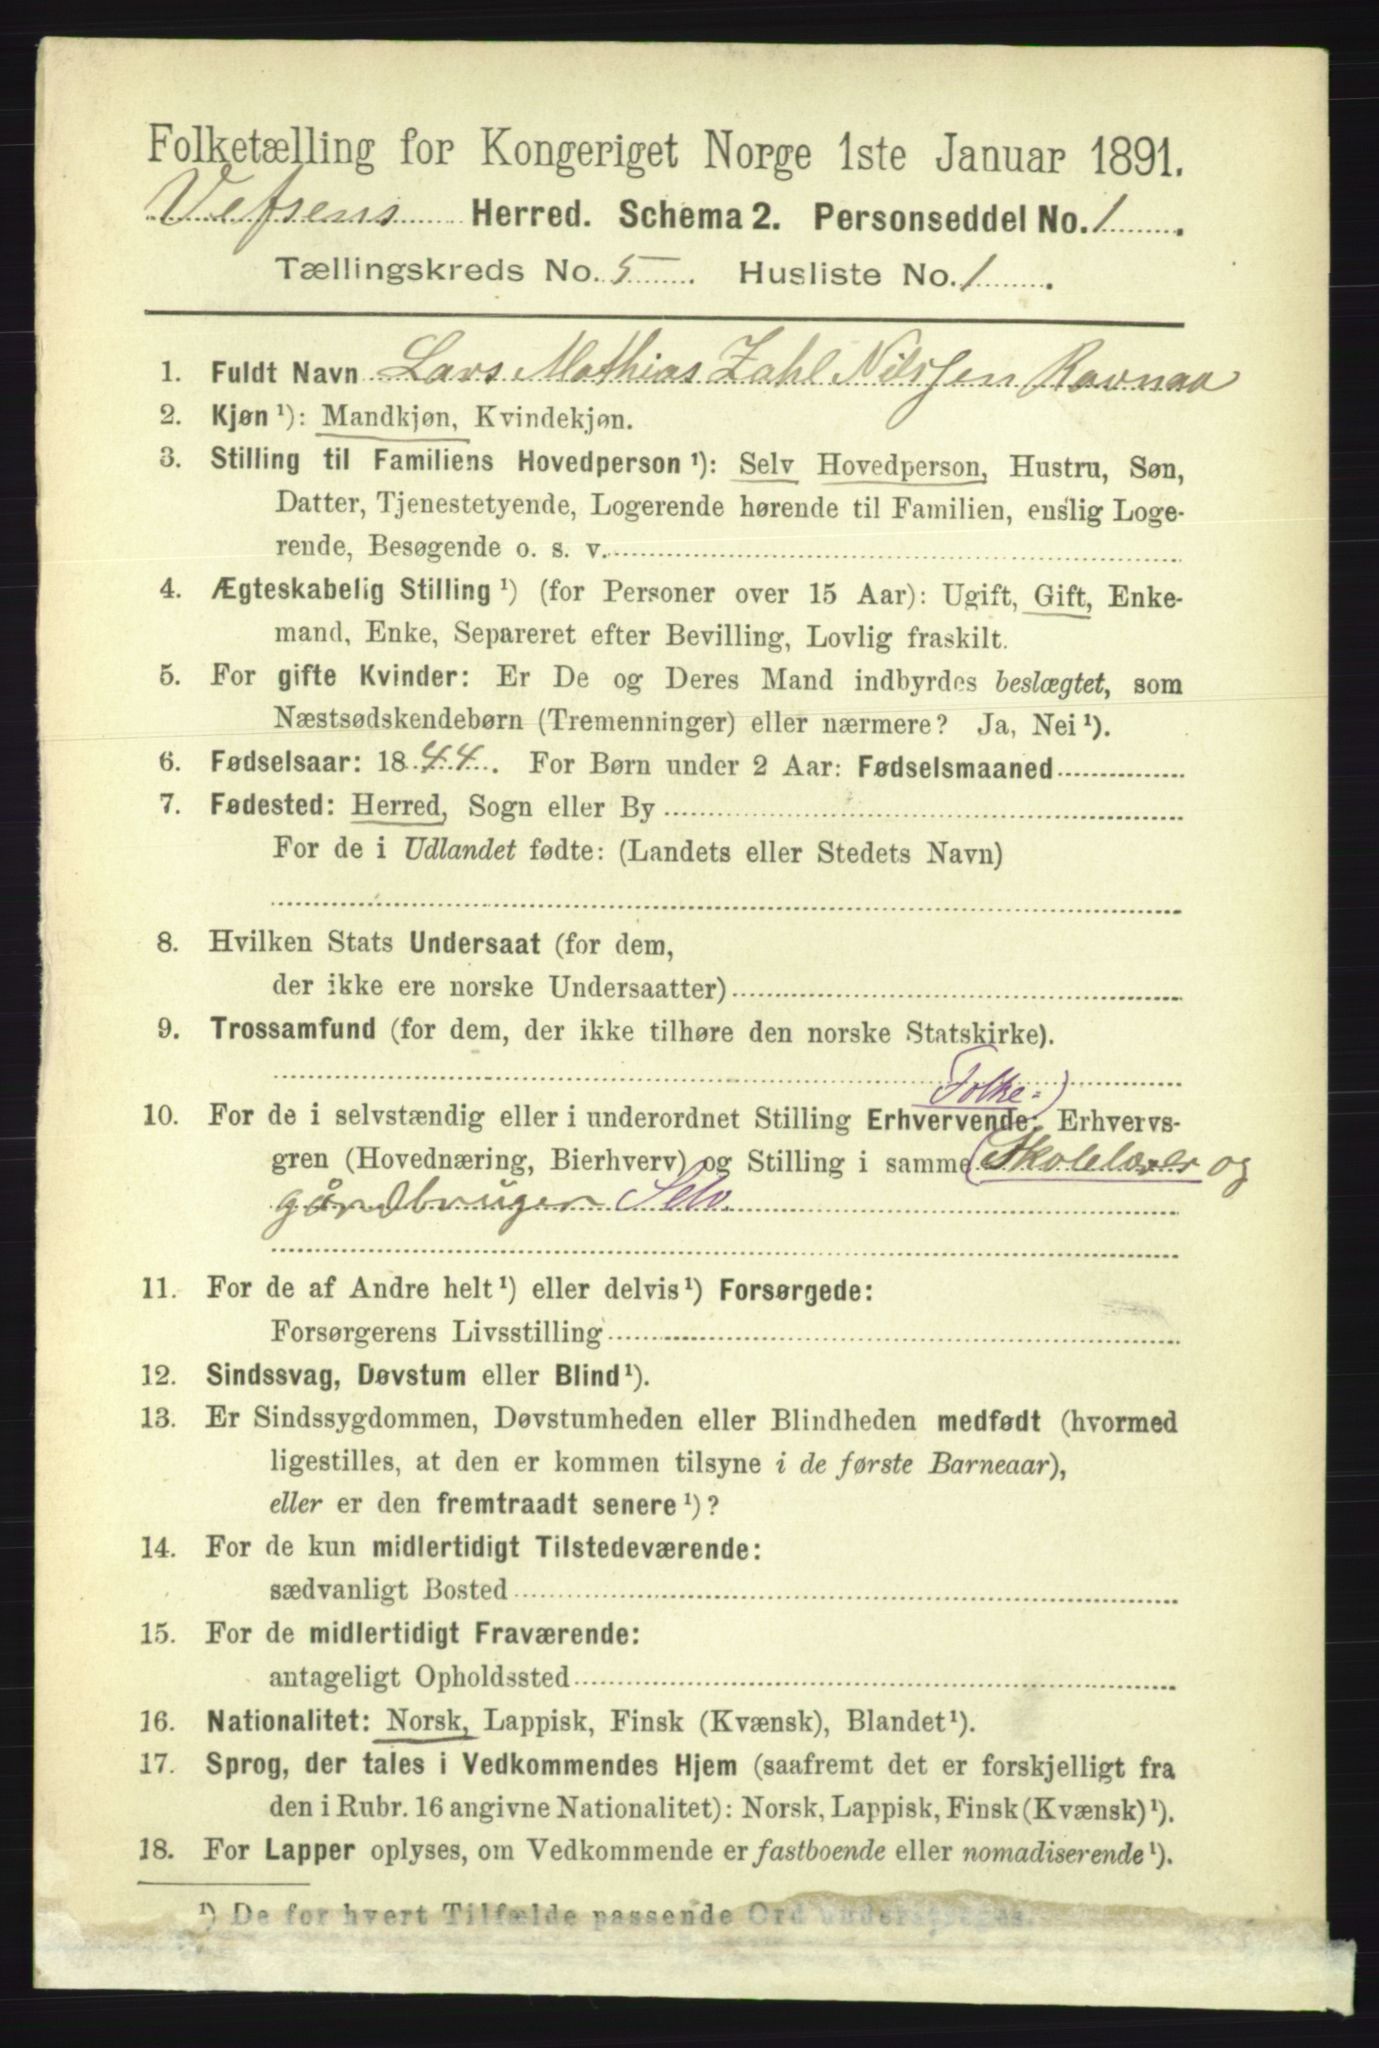 Folketælling for Kongeriget Norge 1ste Januar 1891.
Vefsens Herred. Schema 2. Personseddel No. 1.
Tællingskreds No. 5. Husliste No. 1.
1. Fuldt Navn Lars Mathias Zahl Nilssen Ravnaa
2. Kjøn ¹): Mandkjøn, Kvindekjøn.
3. Stilling til Familiens Hovedperson ¹): Selv Hovedperson, Hustru, Søn,
Datter, Tjenestetyende, Logerende hørende til Familien, enslig Loge-
rende, Besøgende o. s. v.
4. Ægteskabelig Stilling ¹) (for Personer over 15 Aar): Ugift, Gift, Enke-
mand, Enke, Separeret efter Bevilling, Lovlig fraskilt.
5. For gifte Kvinder: Er De og Deres Mand indbyrdes beslægtet, som
Næstsødskendebørn (Tremenninger) eller nærmere? Ja, Nei ¹).
6. Fødselsaar: 1844. For Børn under 2 Aar: Fødselsmaaned
7. Fødested: Herred, Sogn eller By
For de i Udlandet fødte: (Landets eller Stedets Navn)
8. Hvilken Stats Undersaat (for dem,
der ikke ere norske Undersaatter)
9. Trossamfund (for dem, der ikke tilhøre den norske Statskirke).
Folke-)
10. For de i selvstændig eller i underordnet Stilling Erhvervende: Erhvervs-
gren (Hovednæring, Bierhverv) og Stilling i samme (Skolelærer og
gårdbruger Selv
11. For de af Andre helt ¹) eller delvis ¹) Forsørgede:
Forsørgerens Livsstilling
12. Sindssvag, Døvstum eller Blind ¹).
13. Er Sindssygdommen, Døvstumheden eller Blindheden medfødt (hvormed
ligestilles, at den er kommen tilsyne i de første Barneaar),
eller er den fremtraadt senere ¹)?
14. For de kun midlertidigt Tilstedeværende:
sædvanligt Bosted
15. For de midlertidigt Fraværende:
antageligt Opholdssted
16. Nationalitet: Norsk, Lappisk, Finsk (Kvænsk), Blandet ¹).
17. Sprog, der tales i Vedkommendes Hjem (saafremt det er forskjelligt fra
den i Rubr. 16 angivne Nationalitet): Norsk, Lappisk, Finsk (Kvænsk) ¹).
18. For Lapper oplyses, om Vedkommende er fastboende eller nomadiserende ¹).
¹) De for hvert Tilfælde passende Ord understreges.